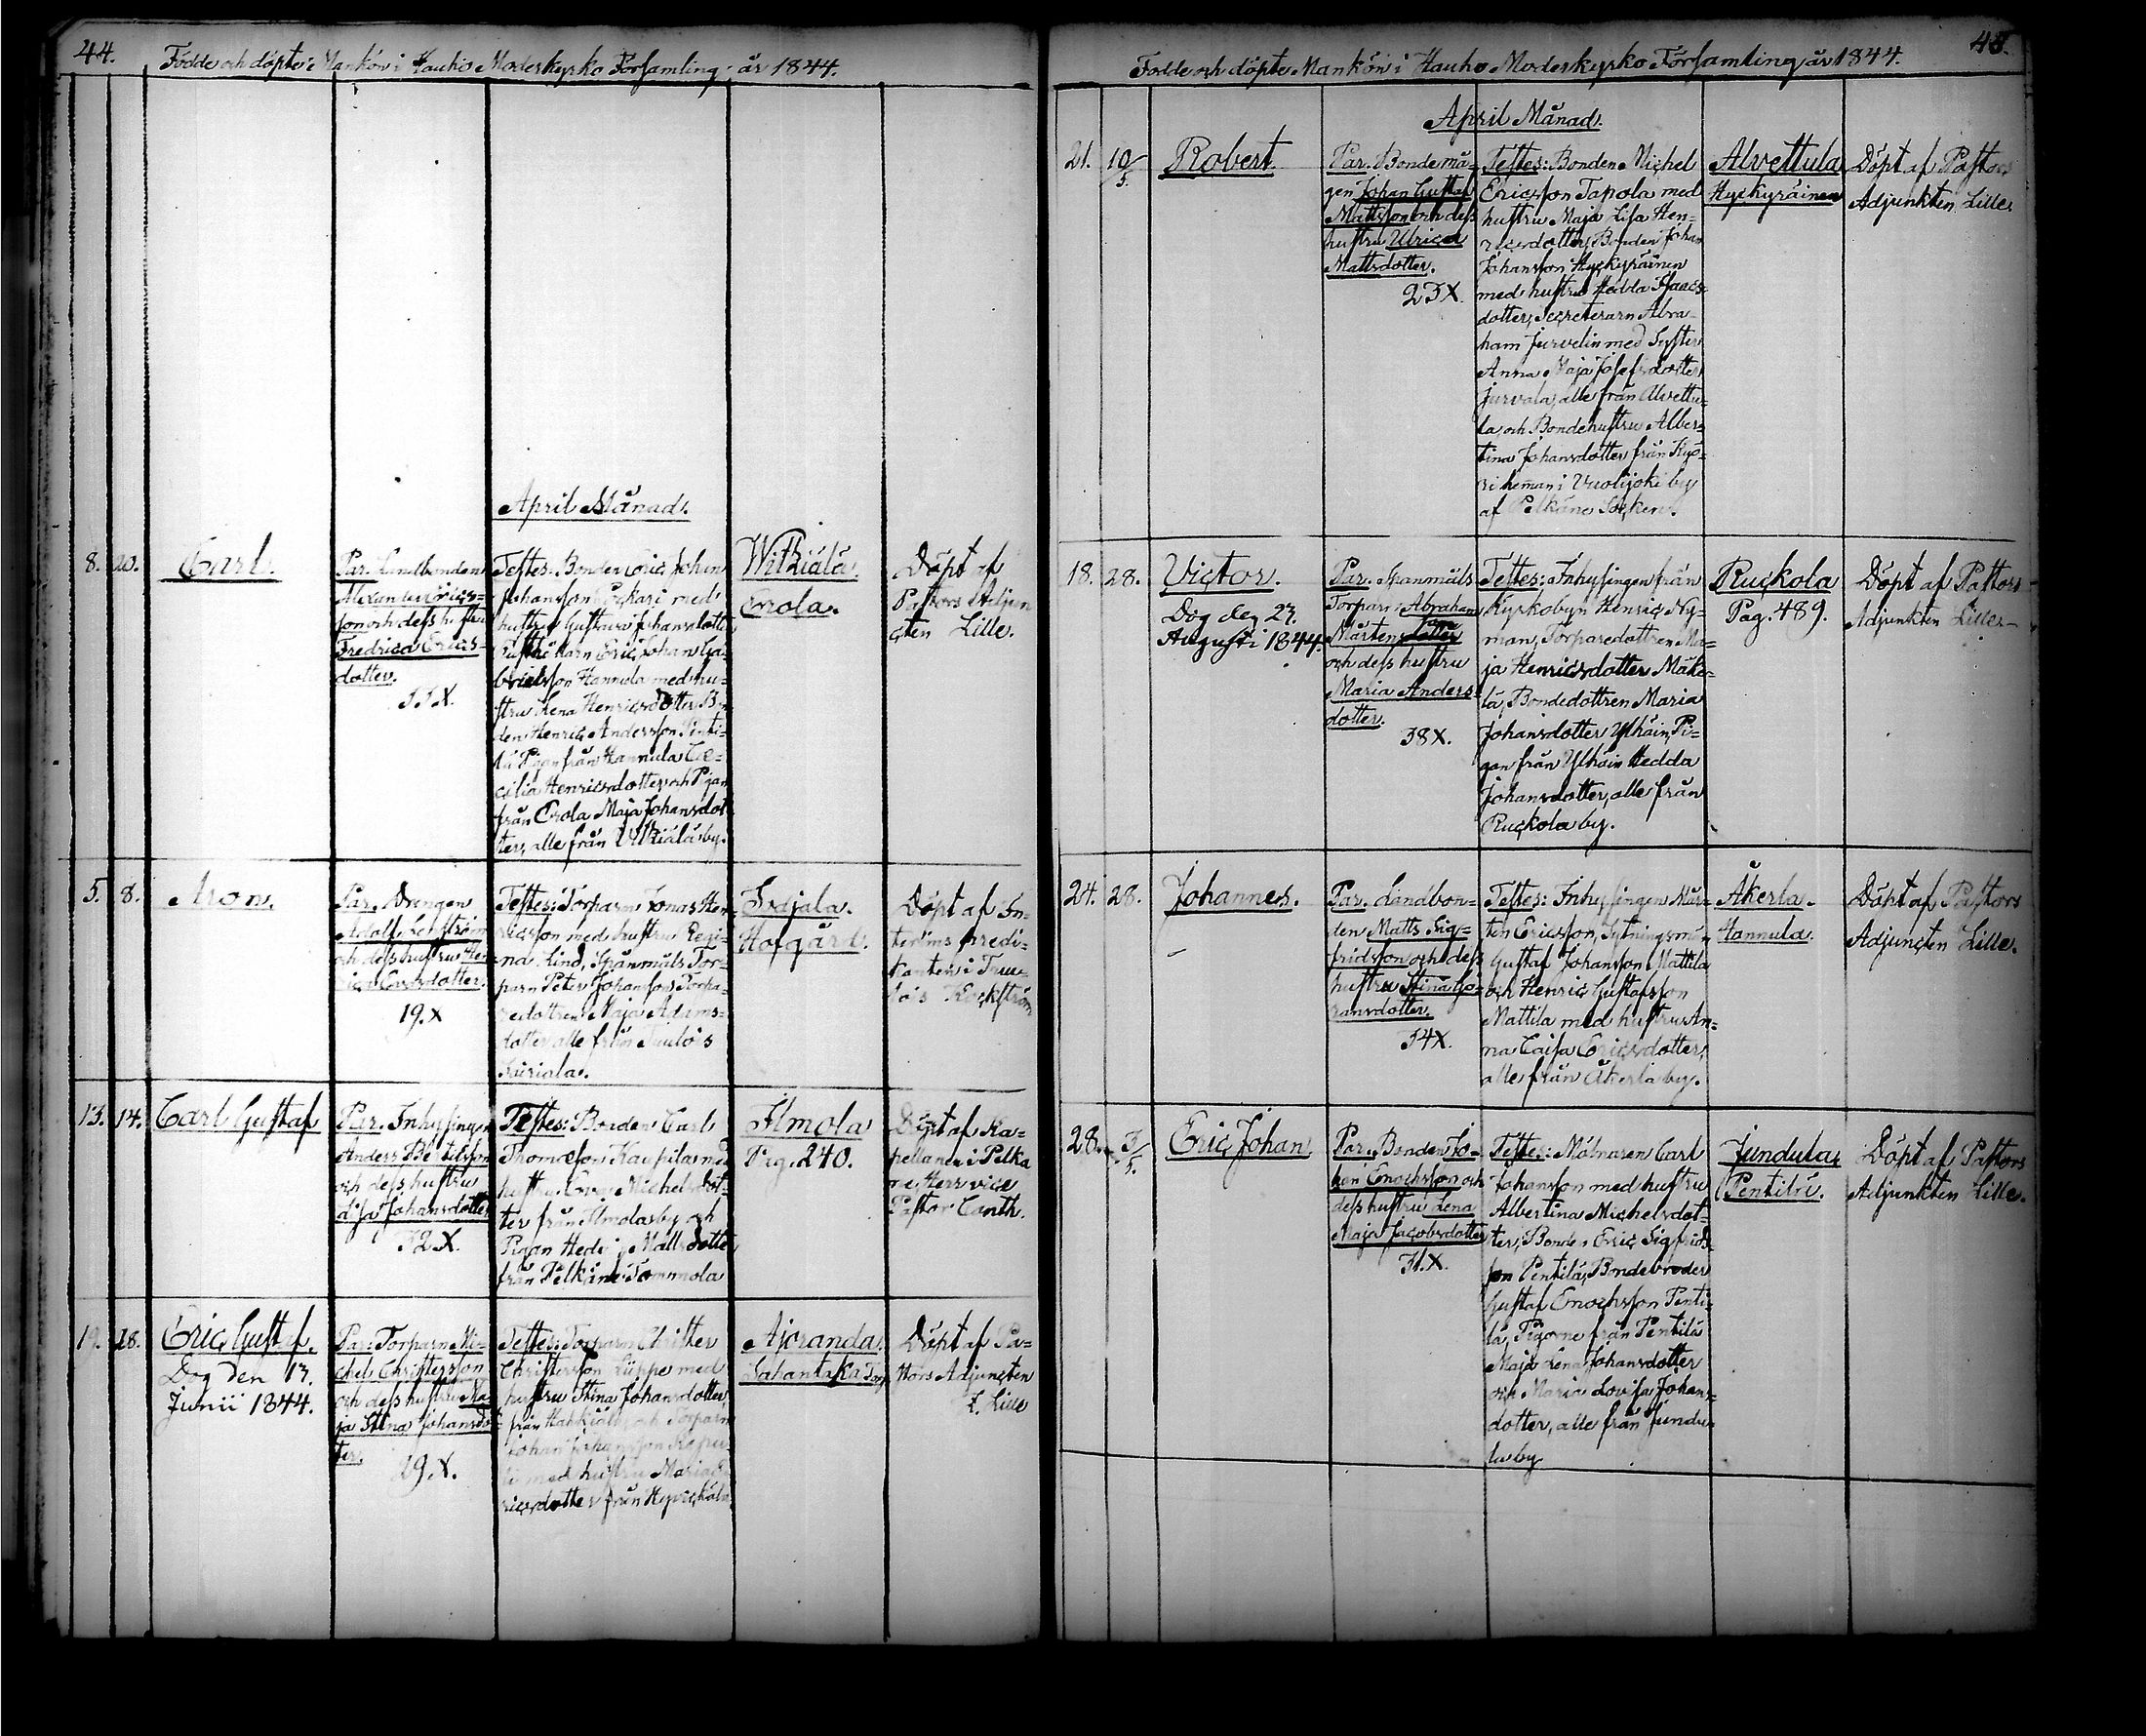 44.
Födde och döpte Mankön i Hauho Moderkyrko Församling år 1844.
April Månad.
8. 20.
Carl.
Par. Landbonden
Alexander Erics-
son och dess hustru
Fredrica Erics-
dotter.
33X.
Testes: Bonden Eric Johan
Johansson med
hustru Gustava Johansdotter
Eric Johan Ga-
brielsson Hannula med hu-
stru Lena Henricsdotter Bon
den Henric Andersson Pänti-
lä Pigan från Hannula Cæ-
cilia Henricsdotter och Pigan
från Erola Maja Johansdot
ter, alle från Vitziälä by.
Witziälä.
Erola.
Döpt af
Pastors Adjun
cten Lille.
5. 8.
Aron.
Par. Drengen
Adolf
och dess hustru He-
Carlsdotter.
19.X
Testes: Torparn Jonas Hen
ricsson med hustru Regi-
na Lind, Spanmåls Tor-
parn Peter Johansson Torpa-
redottren Maja Adams-
dotter alle från Tuulois
Sairiala.
Idjala.
Hofgård.
Döpt af In-
terims predi-
kanten i Tuu-
lois Kockström
13. 14.
Carl Gustaf
Par. Inhysingen
Anders Bertilsson
och dess hustru
Johansdotter
32.X.
Testes: Bonden Carl
Thomasson Kaupila med
hustru Eva Michelsdot-
ter från Ilmola by och
Pigan Hedvig Mattsdotter
från Pelkäne Tommola
Ilmola
Pag. 240.
Döpt af Ka-
pellanen i Pelkä
ne Herr vice
Pastor Canth.
18.
Eric Gustaf.
Dog den 13.
Junii 1844.
Par. Torparn Mi-
chel Christersson
och dess hustru Ma
ja Stina Johansdot-
ter.
29.X.
Testes: Torparn Christer
Christersson Lüppe med
hustru Stina Johansdotter
från Hahkiala och Torparn
Johan Johansson
med hustru Maria E
ricsdotter från
Ajoranda.
Sahantaka Torp
Döpt af Pa-
stors Adjuncten
Z. Lille
45.
Födde och döpte Mankön i Hauho Moderkyrko Församling år 1844.
April Månad.
21. 10/5.
Robert.
Par. Bondemå-
gen Johan Gustaf
Mattsson och dess
hustru Ulrica
Mattsdotter.
23X.
Testes: Bonden Michel
Ericsson Tapola med
hustru Maja Lisa Hen-
ricsdotter, Bonden Johan
Johansson Hyckyräinen
med hustru Hedda Isaacs-
dotter, Secreterarn Abra-
ham Jurvelin med Syster
Anna Maja Josefsdotter
Jurvala, alle från Alvettu-
la, och Bondehustru Alber-
tina Johansdotter från Kyö-
ri heman i Vuolijoki by
af Pelkäne Socken.
Alvettula
Hyckyräinen
Döpt af Pastors
Adjunkten Lille.
18. 28.
Victor.
Dog den 23.
Augusti 1844.
Par. Spanmåls
Torparn Abraham
Mårtensdotter son
och dess hustru
Maria Anders-
dotter.
38X.
Testes: Inhysingen från
Kyrkobyn Henric Ny-
man, Torparedottren Ma-
ja Henricsdotter Mäke-
lä, Bondedottren Maria
Johansdotter Ylhäin, Pi-
gan från Ylhäin Hedda
Johansdotter, alle från
Ruckola by.
Ruckola
Pag. 489.
Döpt af Pastors
Adjunkten Lille
24. 28.
Johannes.
Par. Landbon-
den Matts Sig-
fridsson och dess
hustru Stina Gö-
ransdotter.
34X.
Testes: Inhysingen Mår-
ten Ericsson, Sytningsmän
Gustaf Johansson Mattila
och Henric Gustafsson
Mattila med hustru An-
na Caisa Ericsdotter,
alle från Åkerla by.
Åkerla.
Hannula.
Döpt af Pastors
Adjuncten Lille.
28. 3/5.
Eric Johan.
Par. Bonden Jo-
han Enochsson och
dess hustru Lena
Maja Jacobsdotter
31.X.
Testes: Mölnaren Carl
Johansson med hustru
Albertina Michelsdot-
ter, Bonden Eric Sigfrids-
son Pentilä, Bondebroder
Gustaf Enochsson Penti-
lä, Pigorne från Pentilä
Maja Lena Johansdotter
och Maria Lovisa Johans-
dotter, alle från Jundu-
la by
Jundula,
Pentilä.
Döpt af Pastors
Adjunkten Lille.